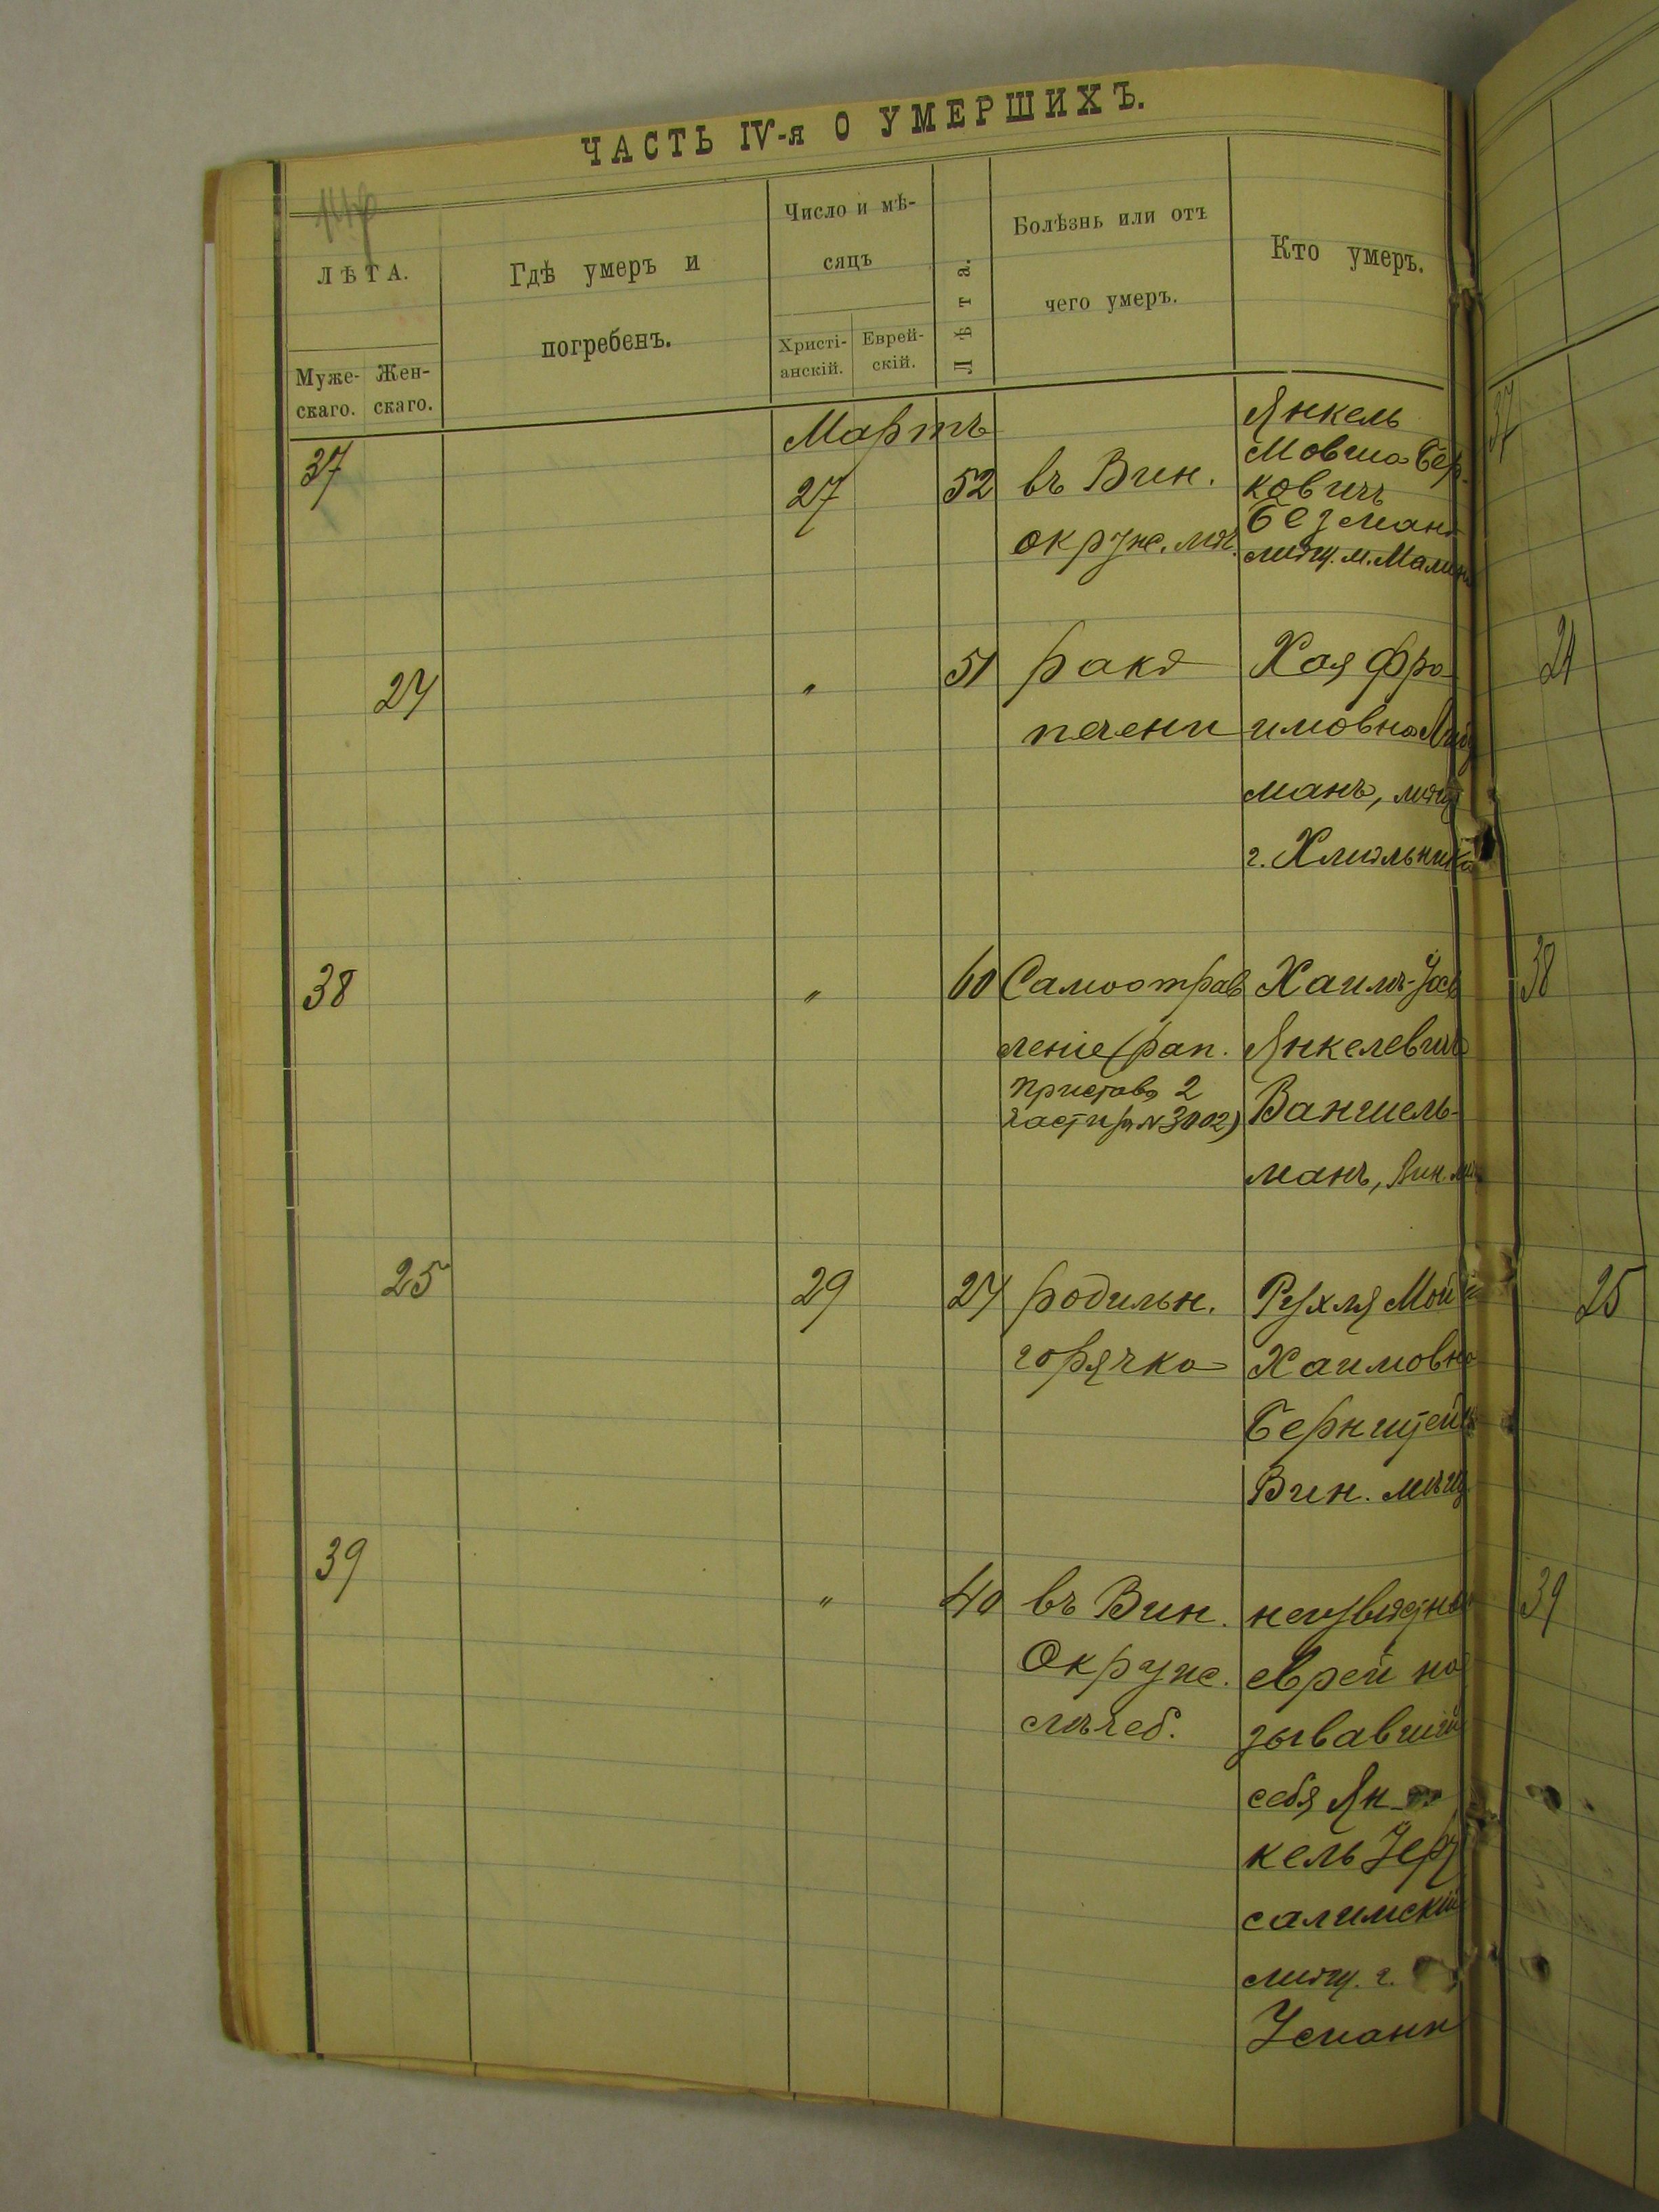 ЧАСТЬ IV-я О УМЕРШИХЪ.
ЛѢТА.
Муже-
скаго.
Жен-
скаго.
Гдѣ умеръ и
погребенъ.
Число и мѣ-
сяцъ
Христі-
анскій.
Еврей-
скій.
Лѣта.
Болѣзнь или отъ
чего умеръ.
Кто умеръ.
Мартъ
37
27
52
въ Вин.
окруж.
Янкель
Мовша Бер-
ковичъ
Безман
мѣщ. м. Малин
37
24
"
51
ракъ
печени
Хая Фро
имовна
манъ, мѣщ
г. Хмѣльника
24
38
"
60
Самоотрав
леніе (рап.
Пристава 2
части № 3002)
Хаимъ-
Янкелевичъ
Вангшель-
манъ, Вин. мѣщ
38
25
29
24
родильн.
горячка
Рухля
Хаимовна
Бернштейнъ
Вин. мѣщ.
25
39
"
40
въ Вин.
Окруж.
лѣчеб.
неизвѣстно
еврей на
зывавшій
себя Ян-
кель Іеру
салимскій
мѣщ. г.
Умани
39